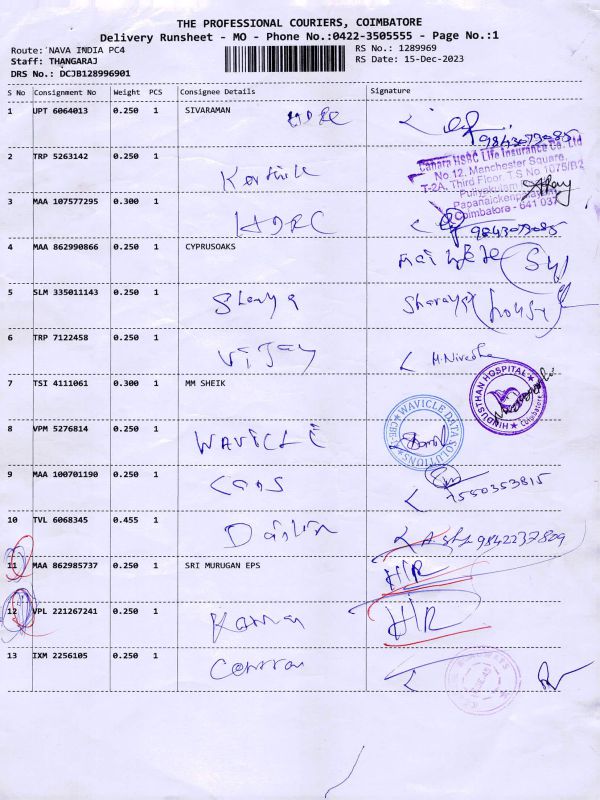 THE PROFESSIONAL COURIERS, COIMBATORE
Delivery Runsheet - MO - Phone No.:0422-3505555 - Page No.:1
Route: NAVA INDIA PC4
RS No.: 1289969
Staff: THANGARAJ
RS Date: 15-Dec-2023
DRS No.: DCJB128996901
S No Consignment No Weight PCS Consignee Details Signature
1 UPT 6064013 0.250 1 SIVARAMAN
9843073085
2 TRP 5263142 0.250 1
Canara HSBC Life Insurance Co. Ltd
No 12, Manchester Square,
T-2A, Third Floor, T.S No 1075/B2
Puliyakulam
Papanaickenpalayam
Coimbatore - 641 037
3 MAA 107577295 0.300 1
9843073085
4 MAA 862990866 0.250 1 CYPRUSOAKS
5 SLM 335011143 0.250 1
house
6 TRP 7122458 0.250 1 Vijay
M. Nivedha
7 TSI 4111061 0.300 1 MM SHEIK
HINDUSTHAN HOSPITAL
Coimbatore
8 VPM 5276814 0.250 1 WAVICLE
WAVICLE DATA SOLUTIONS
9 MAA 100701190 0.250 1
7550353815
10 TVL 6068345 0.455 1
9842237809
11 MAA 862985737 0.250 1 SRI MURUGAN EPS H/R
12 VPL 221267241 0.250 1 H/R
13 IXM 2256105 0.250 1